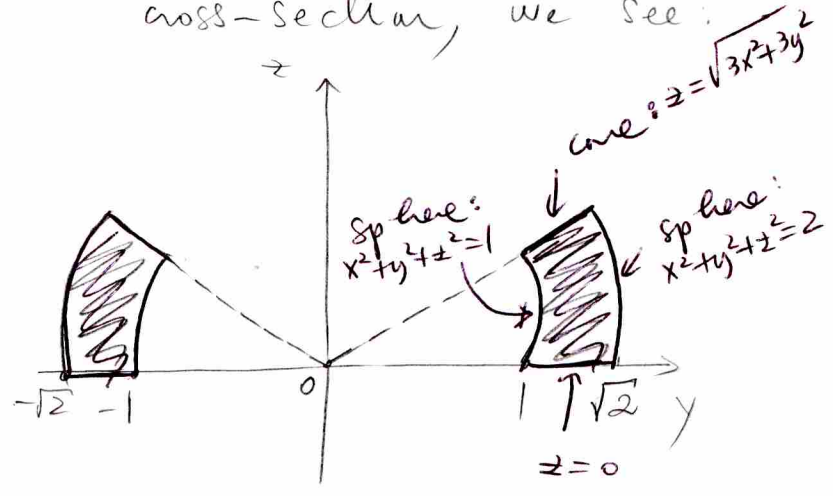 cross-section, we see:
z
cone: z = √3x²+3y²
sphere:
x²+y²+z²=1
sphere:
x²+y²+z²=2
-√2 -1 0 1 √2 y
z=0